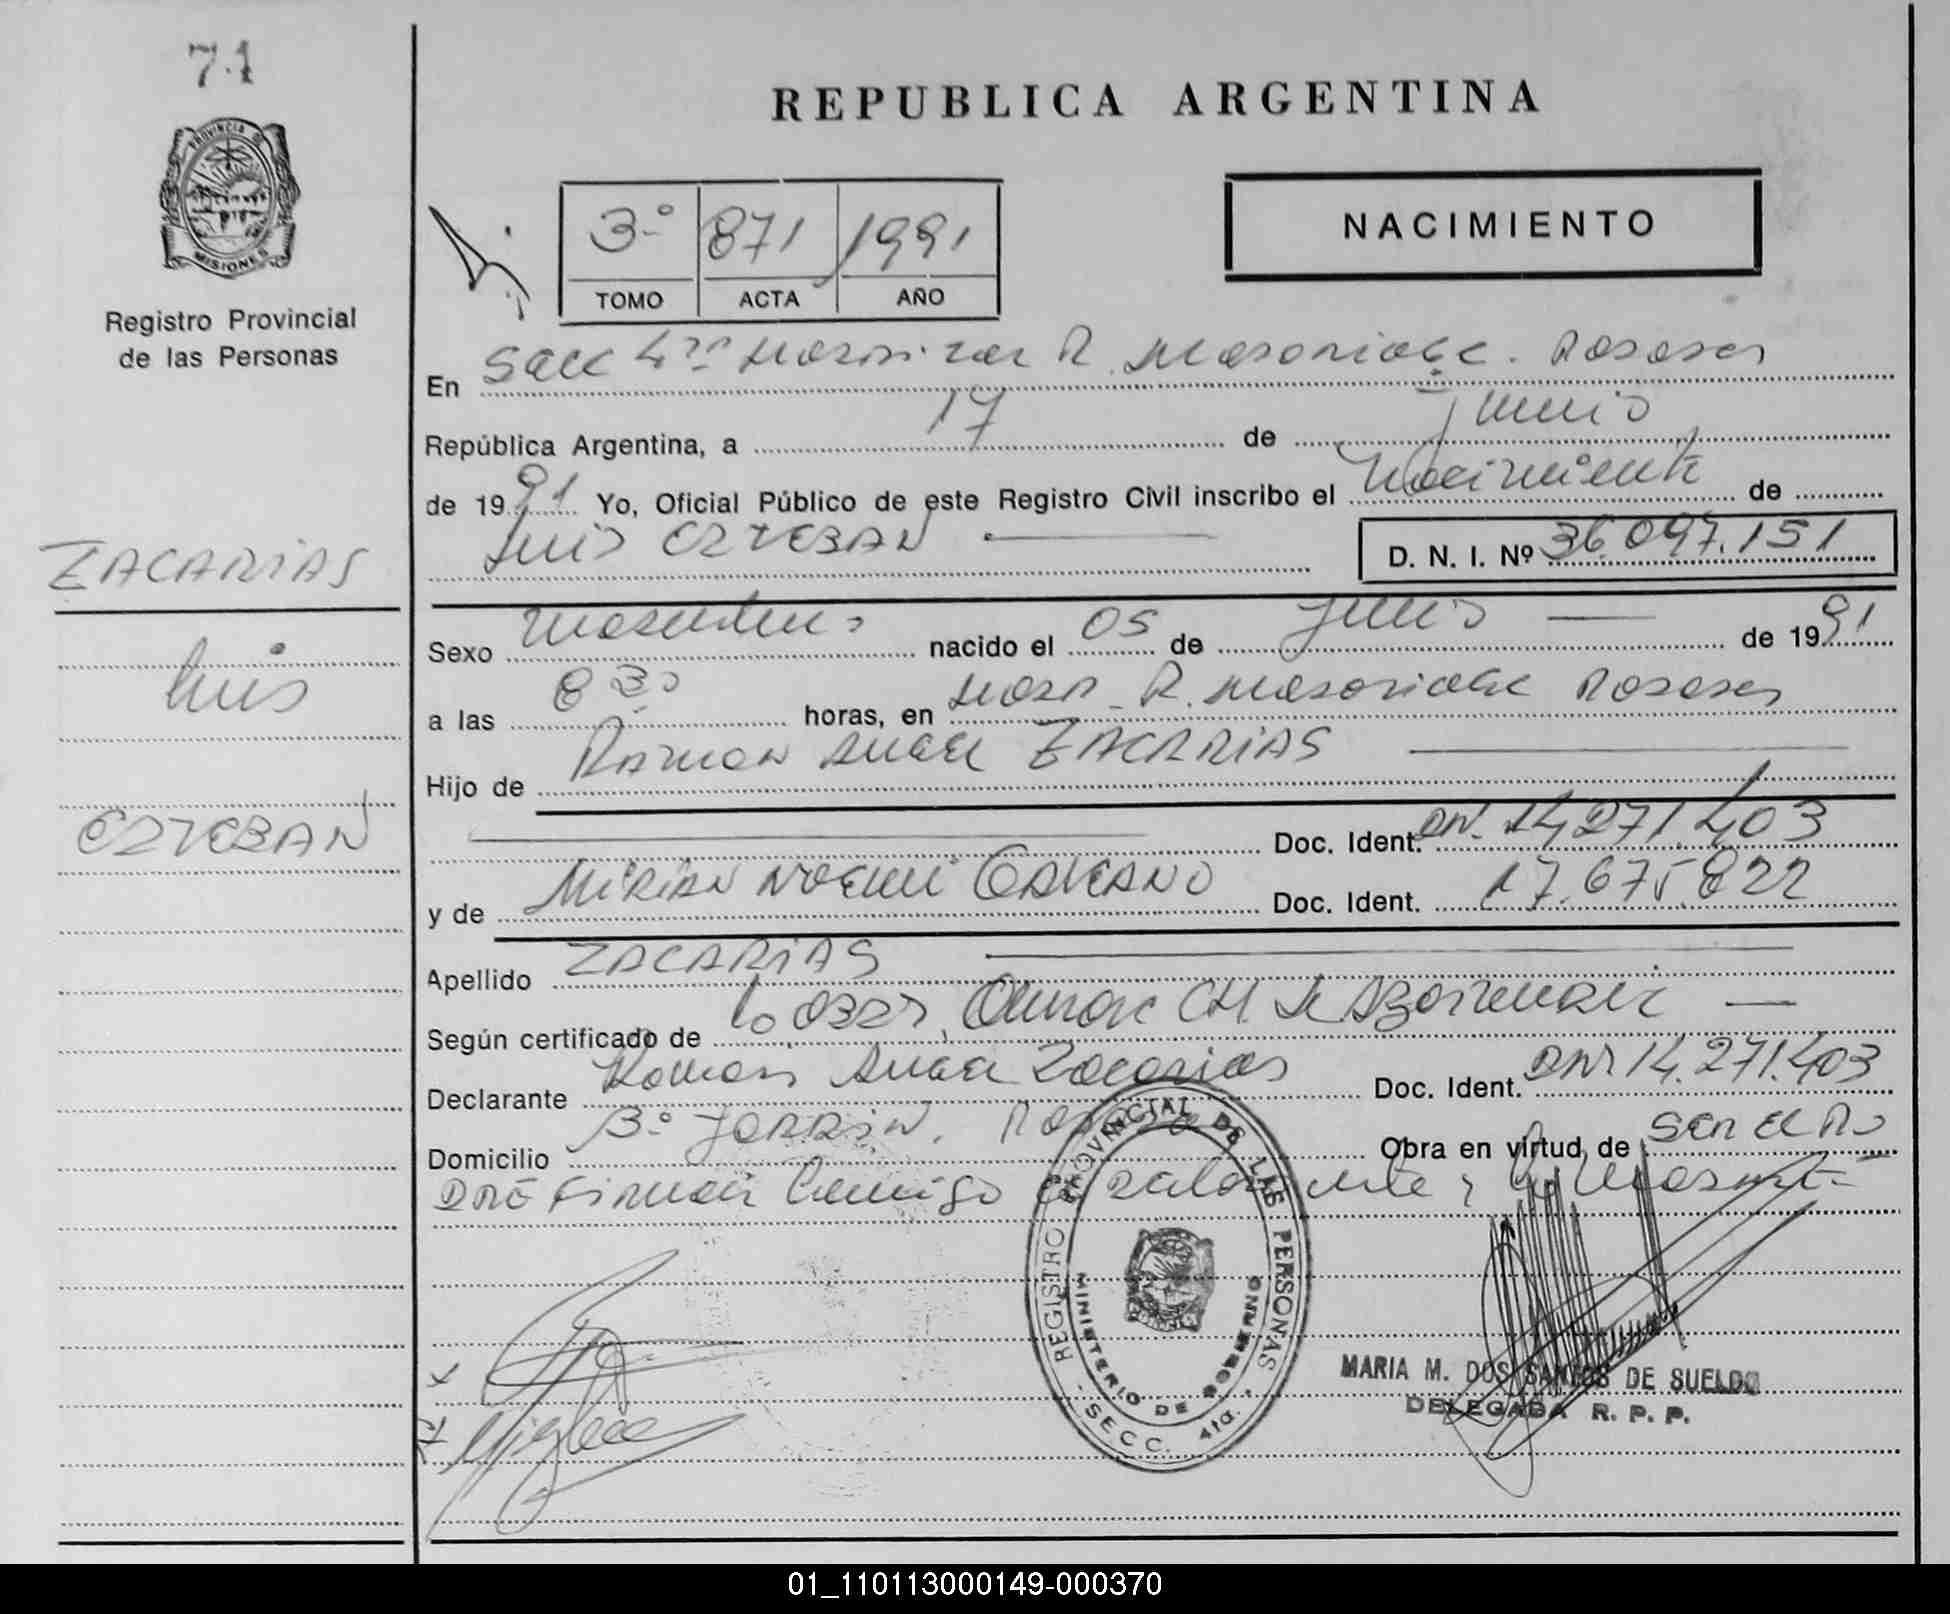 71
REPUBLICA ARGENTINA
PROVINCIA D
MISIONES
Registro Provincial
de las Personas
3º 871 1991
TOMO ACTA AÑO
NACIMIENTO
En Secc 4ta R. Posadas
República Argentina, a 17 de Junio
de 1991 Yo, Oficial Público de este Registro Civil inscribo el Nacimiento de
Luis EZTEBAN D. N. I. Nº 36.097.151
ZACARIAS
Luis
EZTEBAN
Sexo masculino nacido el 05 de Junio de 1991
a las 8 30 horas, en R. Posadas
Hijo de Ramon Angel ZACARIAS
Doc. Ident. DNI. 14,271.403
y de MIRIAN NOEMI GALEANO Doc. Ident. 17.675.822
Apellido ZACARIAS
Según certificado de la Obst.
Declarante Ramon Angel Zacarias Doc. Ident. DNI 14.271.403
Domicilio Bº Obra en virtud de ser el Pa
dre Firman Conmigo
REGISTRO PROVINCIAL DE LAS PERSONAS
MINISTERIO DE GOBIERNO
- SECC. 4ta. -
MARIA M. DOS SANTOS DE SUELDO
DELEGADA R. P. P.
01_110113000149-000370